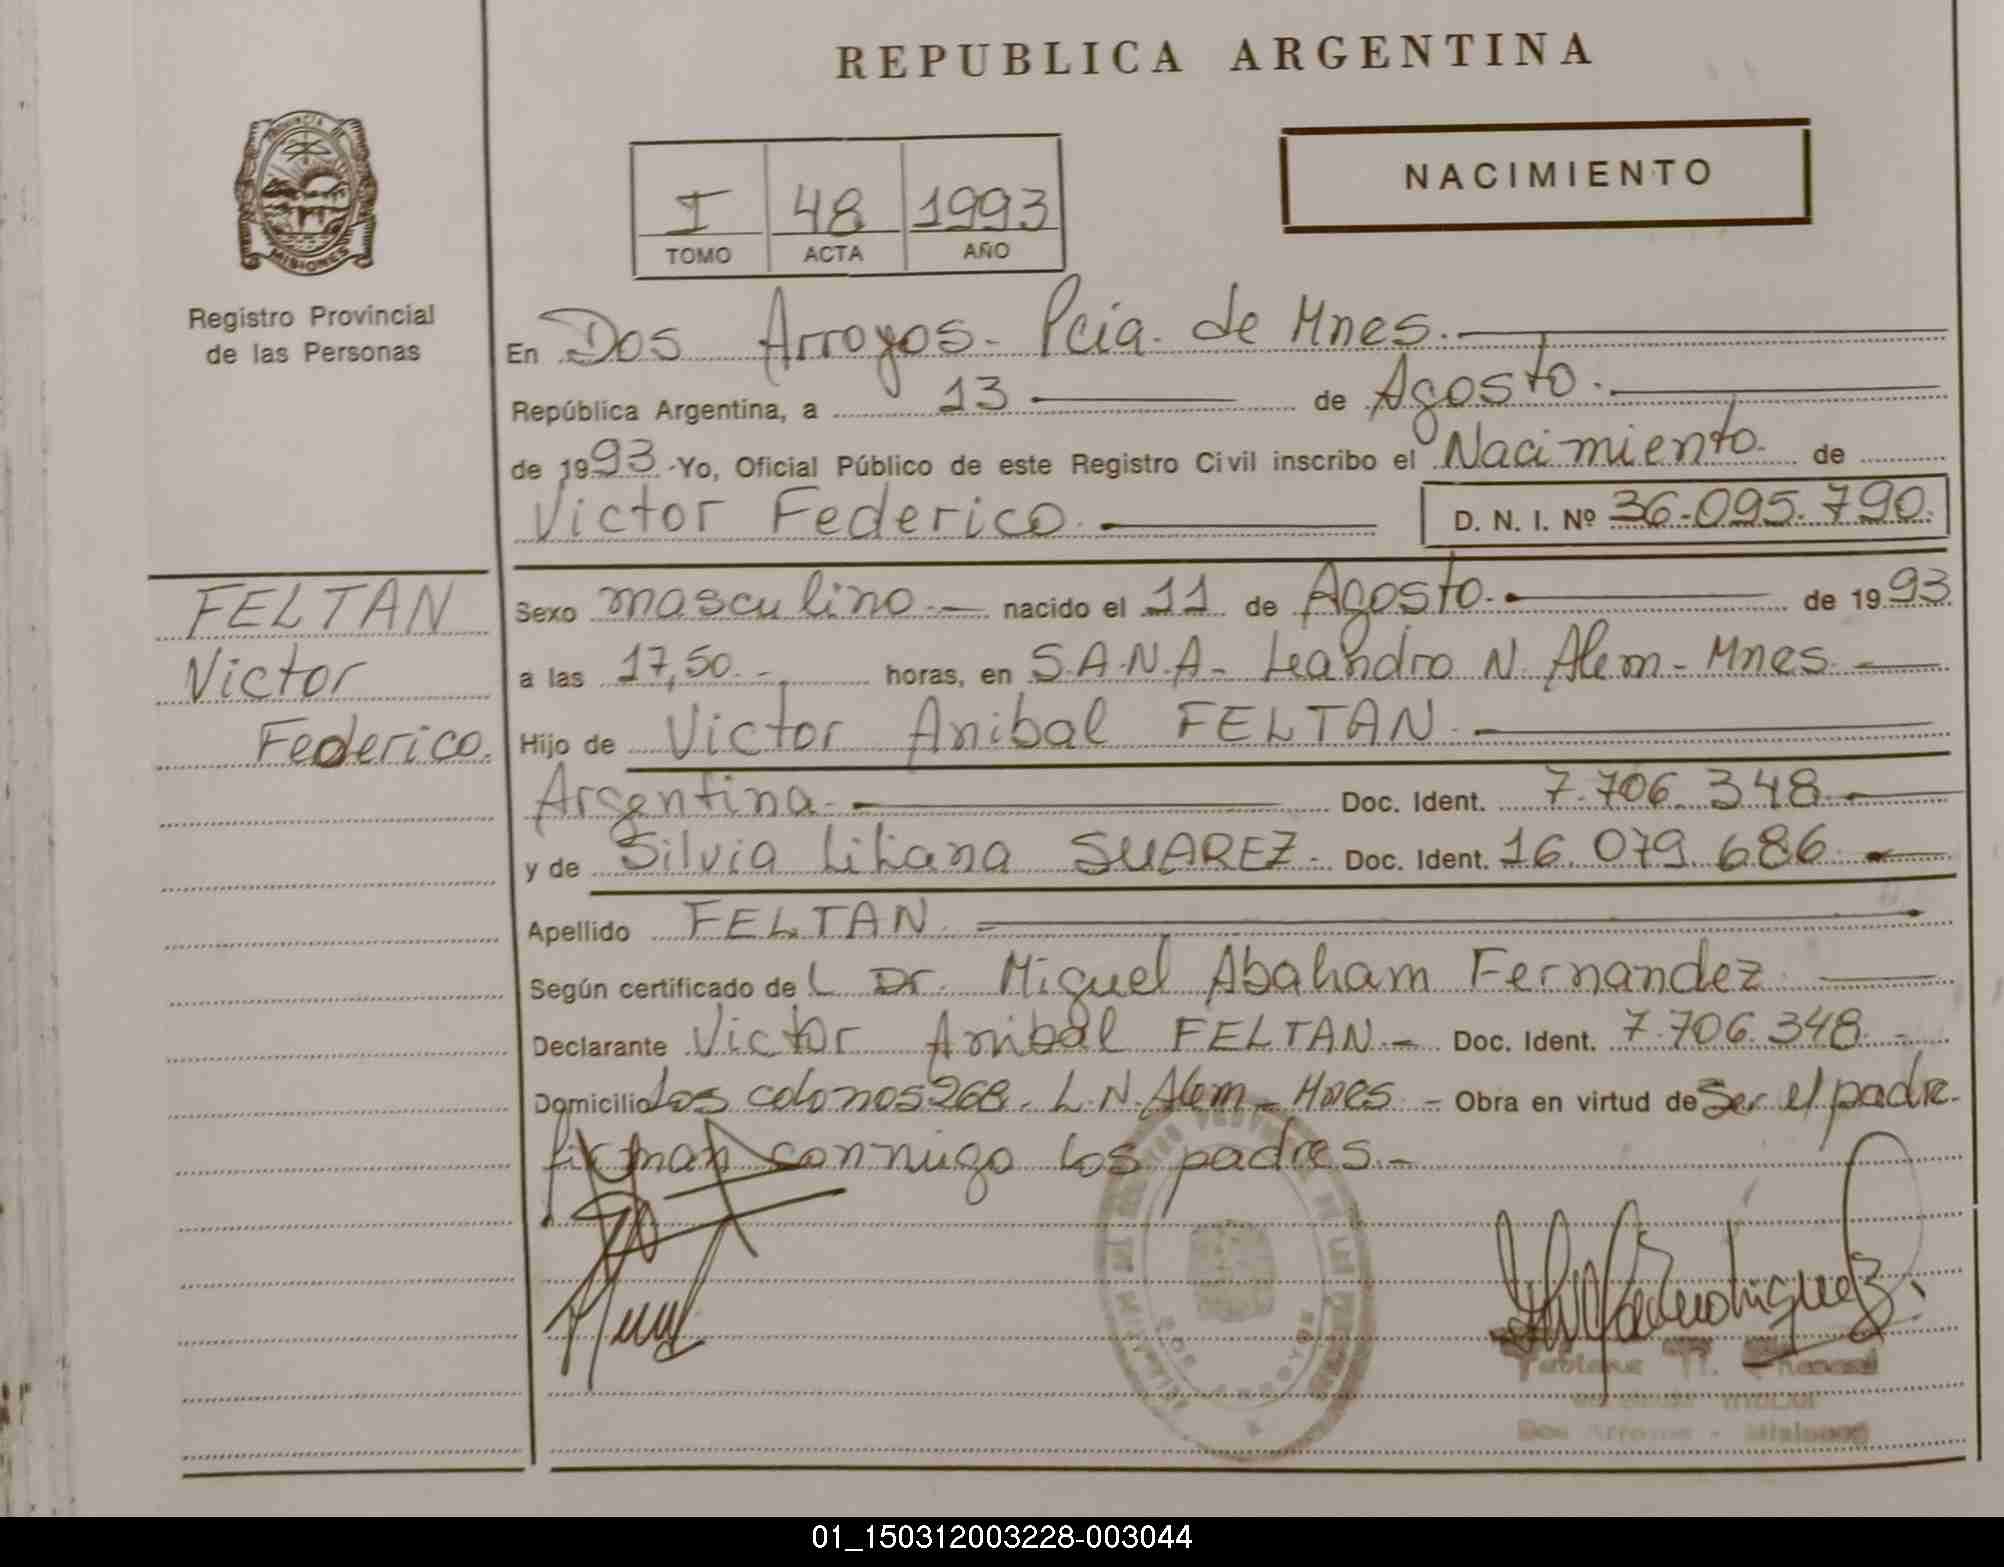 REPUBLICA ARGENTINA
PROVINCIA DE
MISIONES
Registro Provincial
de las Personas
NACIMIENTO
I 48 1993
TOMO ACTA AÑO
En Dos Arroyos - Pcia. de Mnes.
República Argentina, a 13 de Agosto.
de 1993.-Yo, Oficial Público de este Registro Civil inscribo el Nacimiento. de
Victor Federico. D. N. I. Nº 36.095.790.
FELTAN
Victor
Federico.
Sexo masculino.- nacido el 11 de Agosto. de 1993
a las 17,50.- horas, en S.A.N.A- Leandro N. Alem - Mnes.
Hijo de Victor Anibal FELTAN.
Argentina. Doc. Ident. 7.706.348.
y de Silvia Liliana SUAREZ.- Doc. Ident. 16.079.686.
Apellido FELTAN.
Según certificado de L Dr. Miguel Abaham Fernandez
Declarante Victor Anibal FELTAN.- Doc. Ident. 7.706.348.-
Domicilio Los colonos 268. L.N. Alem - Mnes.- Obra en virtud de Ser el padre.
firman conmigo los padres.-
DOS ARROYOS
Dos Arroyos - Misiones
01_150312003228-003044